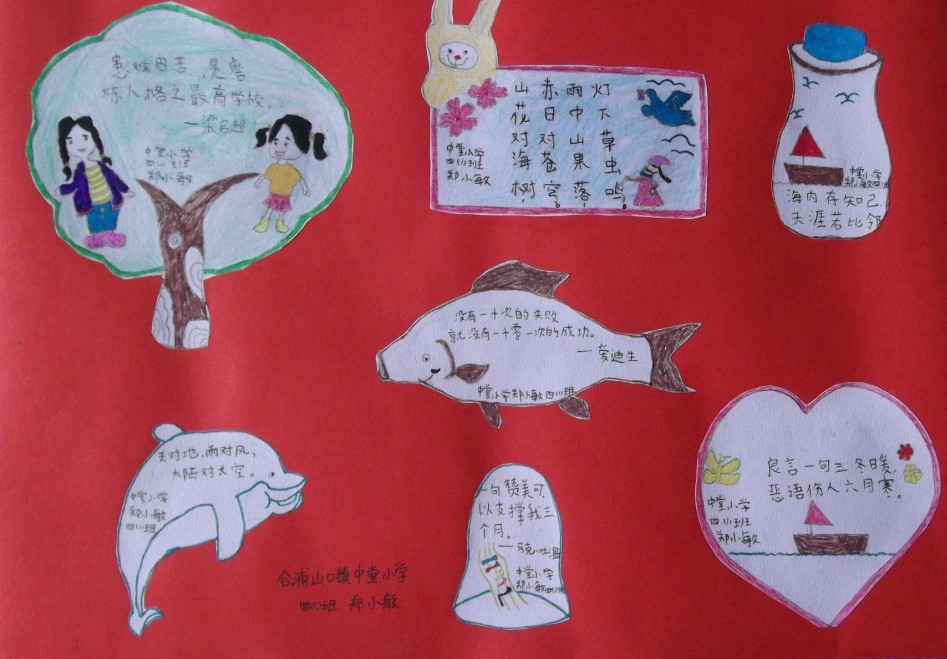 患难困苦,是磨
炼人格之最高学校。
—梁启超
中堂小学
四(1)班
郑小敏
山花对海树,
赤日对苍穹。
雨中山果落,
灯下草虫鸣。
中堂小学
四(1)班
郑小敏
中堂小学
郑小敏
海内存知己
天涯若比邻
没有一千次的失败
就没有一千零一次的成功。
—爱迪生
中堂小学郑小敏四(1)班
天对地,雨对风,
大陆对长空。
中堂小学
郑小敏
四(1)班
一句赞美可
以支撑我三
个月。
—马克·吐温
中堂小学
郑小敏四(1)班
良言一句三冬暖,
恶语伤人六月寒。
中堂小学
四(1)班
郑小敏
合浦山口镇中堂小学
四(1)班 郑小敏